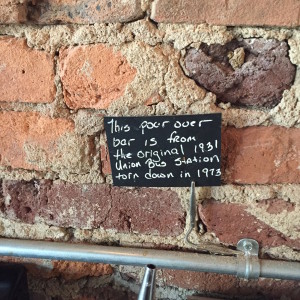 This pour over
bar is from
the original 1931
Union Bus Station
torn down in 1973